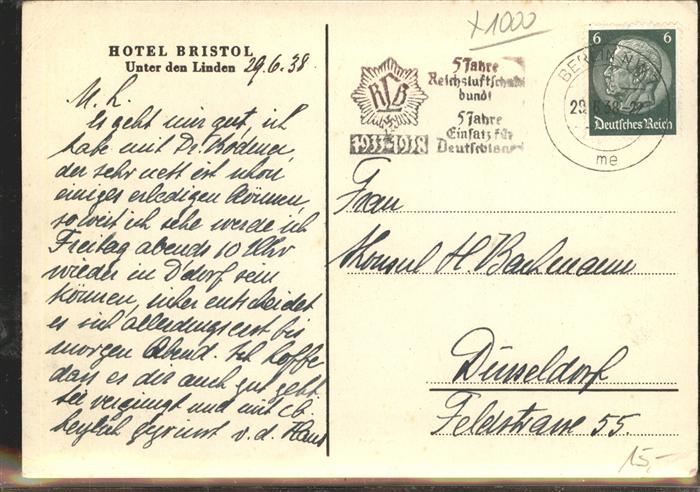 HOTEL BRISTOL
Unter den Linden 29.6.38.
M. L.
Es geht mir gut, ich
habe mit Dr. Bödiner,
der sehr nett ist schon
einiges erledigen können,
soweit ich sehe werde ich
Freitag abends 10 Uhr
wieder in Ddorf sein
können, sicher entscheidet
es sich allerdings erst bis
morgen Abend. Ich hoffe
dass es dir auch gut geht.
sei vergnügt und mit lb.
herzlich gegrüsst v. d. Hans
x1000
RLB
Luftschutz
1933-1938
5 Jahre
Reichsluftschutz
bund!
5 Jahre
Einsatz für
Deutschland
BERLIN
29.6.38-22
me
6 6
Deutsches Reich
Frau
Konsul H. Bachmann
Düsseldorf
Feldstrasse 55.
15,-